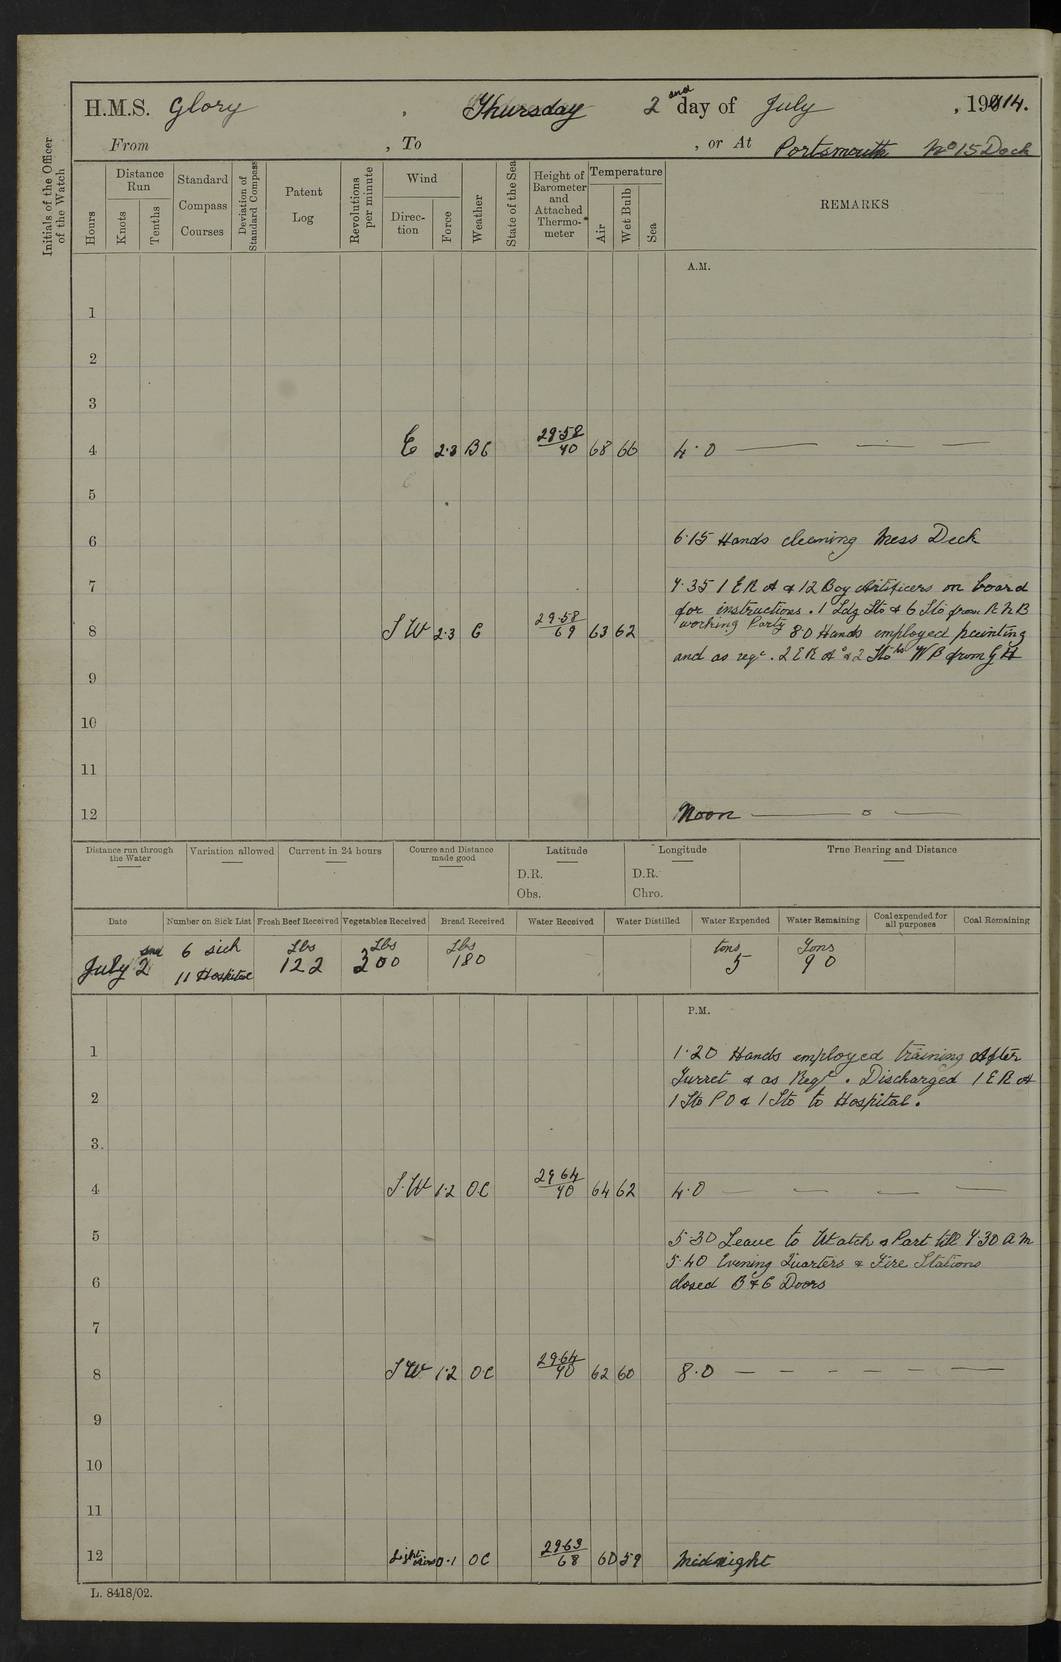 H.M.S. Glory , Thursday 2nd day of July , 1914.
From , To , or At Portsmouth No 15 Dock
Initials of the Officer of the Watch
Hours
Distance Run
Knots
Tenths
Standard Compass Courses
Deviation of Standard Compass
Patent Log
Revolutions per minute
Wind
Direction
Force
Weather
State of the Sea
Height of Barometer and Attached Thermometer
Temperature
Air
Wet Bulb
Sea
REMARKS
A.M.
1
2
3
4 E 2·3 BC 29·58/70 68 66 4·0
5
6 6·15 Hands cleaning Mess Deck
7 7·35 1 ERA & 12 Boy Artificers on board
for instructions. 1 Ldg Sto & 6 Sto from RNB
working Party
8 SW 2·3 C 29·58/69 63 62 8·0 Hands employed painting
and as reqd. 2 ERAs & 2 Stos WB from
9
10
11
12 Noon
Distance run through the Water
Variation allowed
Current in 24 hours
Course and Distance made good
Latitude
D.R.
Obs.
Longitude
D.R.
Chro.
True Bearing and Distance
Date Number on Sick List Fresh Beef Received Vegetables Received Bread Received Water Received Water Distilled Water Expended Water Remaining Coal expended for all purposes Coal Remaining
6 sick Lbs Lbs Lbs tons Tons
July 2nd 11 Hospital 122 200 180 5 90
P.M.
1 1·20 Hands employed training After
Turret & as Reqd. Discharged 1 ERA
2 1 Sto PO & 1 Sto to Hospital.
3
4 S.W 1·2 OC 29 64/70 64 62 4·0
5 5·30 Leave to Watch & Part till 7·30 AM
5·40 Evening Quarters & Fire Stations
6 closed B & C Doors
7
8 SW 1·2 OC 29 64/70 62 60 8·0
9
10
11
12 Light airs 0·1 OC 29 63/68 60 59 Midnight
L. 8418/02.